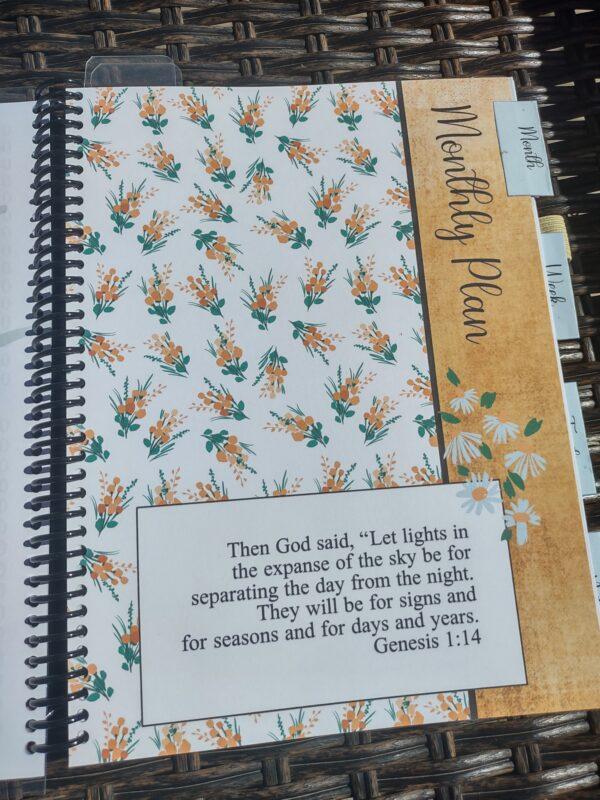 Monthly Plan
Month
Week
Then God said, “Let lights in
the expanse of the sky be for
separating the day from the night.
They will be for signs and
for seasons and for days and years.
Genesis 1:14